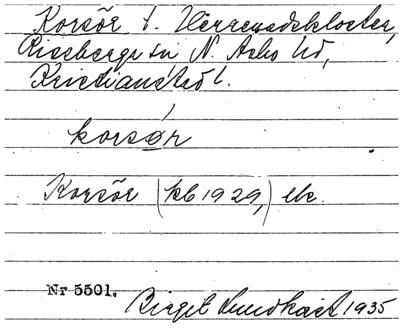 Korsör t. Herrevadskloster,
Riseberga sn N. Åsbo hd,
Kristianst. l.
korsør
Korsör (kb 1929,) etc.
Nr 5501.
Birgit Lundkvist 1935